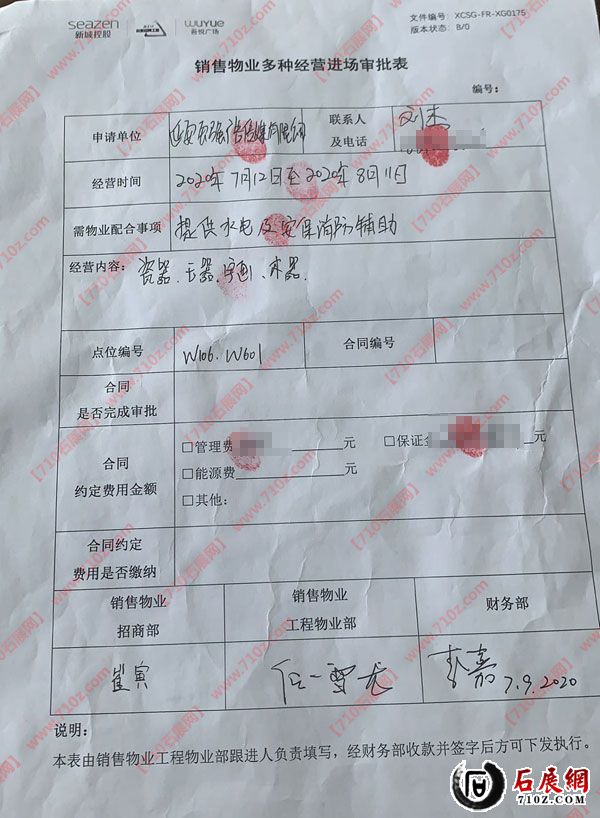 seazen
新城控股
WUYUE
吾悦广场
文件编号: XCSG-FR-XG0175
版本状态: B/0
销售物业多种经营进场审批表
编号:
申请单位
联系人
及电话
经营时间 2020年7月12日至2020年8月11日
需物业配合事项 提供水电及安保消防辅助
经营内容: 瓷器、玉器、字画、木器、
点位编号 W106、W601 合同编号
合同
是否完成审批
合同
约定费用金额
□管理费 元 □保证金 元
□能源费 元
□其他:
合同约定
费用是否缴纳
销售物业
招商部
销售物业
工程物业部
财务部
崔寅 任一雪龙 李嘉 7.9.2020
说明:
本表由销售物业工程物业部跟进人负责填写，经财务部收款并签字后方可下发执行。
【710z石展网】www.710z.com
石展網
710Z.COM